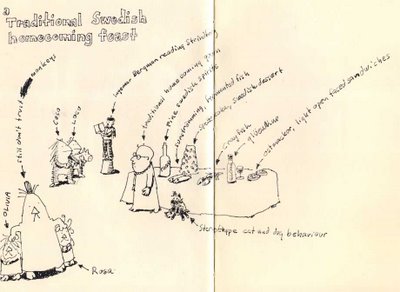 a
Traditional Swedish
homecoming feast
still don't trust monkeys
Coco
Loco
Ingmar Bergman reading Strindberg
traditional home coming gown
Fine swedish spirits
fermented fish
spettekaka, swedish dessert
crayfish
ostmackor, light open faced sandwiches
OLIVIA
Rosa
Stereotype cat and dog behaviour